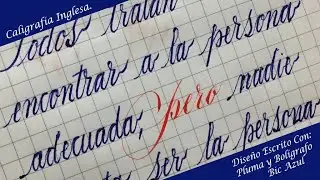 Caligrafía Inglesa.
Todos tratan
encontrar a la persona
adecuada, pero nadie
ser la persona
Diseño Escrito Con:
Pluma y Bolígrafo
Bic Azul